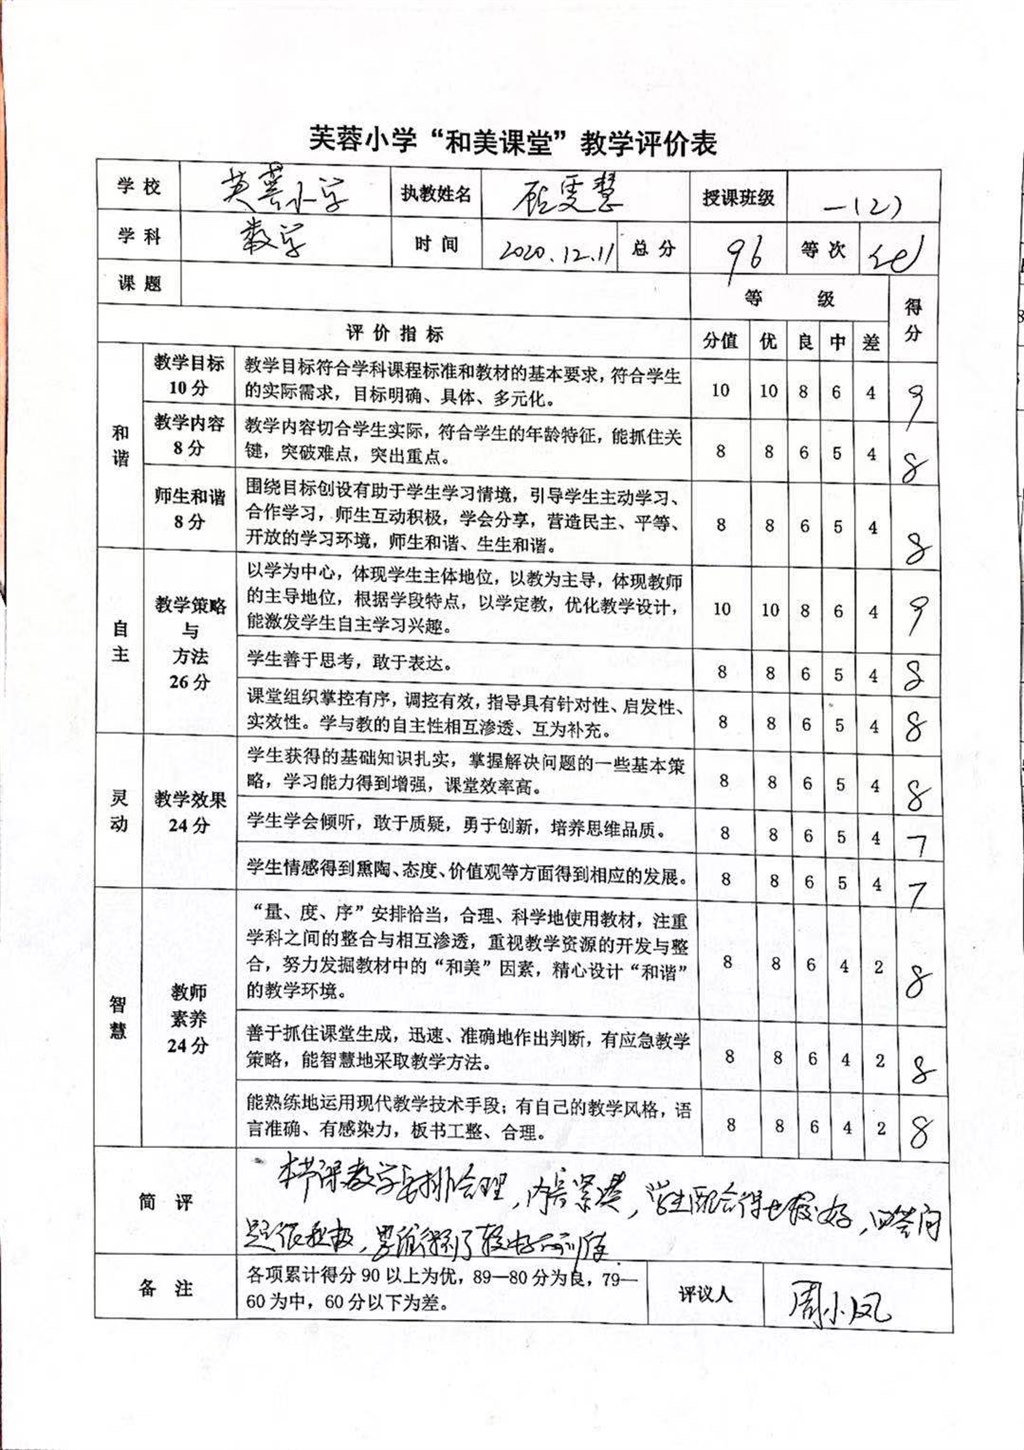 芙蓉小学“和美课堂”教学评价表
学校 芙蓉小学 执教姓名 顾雯慧 授课班级 一(2)
学科 数学 时间 2020.12.11 总分 96 等次 优
课题 等级 得分
评价指标 分值 优 良 中 差
和谐
教学目标 10分
教学目标符合学科课程标准和教材的基本要求，符合学生
的实际需求，目标明确、具体、多元化。
10 10 8 6 4 9
教学内容 8分
教学内容切合学生实际，符合学生的年龄特征，能抓住关
键，突破难点，突出重点。
8 8 6 5 4 8
师生和谐 8分
围绕目标创设有助于学生学习情境，引导学生主动学习、
合作学习，师生互动积极，学会分享，营造民主、平等、
开放的学习环境，师生和谐、生生和谐。
8 8 6 5 4 8
自主
教学策略与方法 26分
以学为中心，体现学生主体地位，以教为主导，体现教师
的主导地位，根据学段特点，以学定教，优化教学设计，
能激发学生自主学习兴趣。
10 10 8 6 4 9
学生善于思考，敢于表达。
8 8 6 5 4 8
课堂组织掌控有序，调控有效，指导具有针对性、启发性、
实效性。学与教的自主性相互渗透、互为补充。
8 8 6 5 4 8
灵动
教学效果 24分
学生获得的基础知识扎实，掌握解决问题的一些基本策
略，学习能力得到增强，课堂效率高。
8 8 6 5 4 8
学生学会倾听，敢于质疑，勇于创新，培养思维品质。
8 8 6 5 4 7
学生情感得到熏陶、态度、价值观等方面得到相应的发展。
8 8 6 5 4 7
智慧
教师素养 24分
“量、度、序”安排恰当，合理、科学地使用教材，注重
学科之间的整合与相互渗透，重视教学资源的开发与整
合，努力发掘教材中的“和美”因素，精心设计“和谐”
的教学环境。
8 8 6 4 2 8
善于抓住课堂生成，迅速、准确地作出判断，有应急教学
策略，能智慧地采取教学方法。
8 8 6 4 2 8
能熟练地运用现代教学技术手段；有自己的教学风格，语
言准确、有感染力，板书工整、合理。
8 8 6 4 2 8
简评
本节课教学安排合理，内容紧凑，学生配合得也较好，回答问
题很积极，思维得到了较好的训练
备注
各项累计得分 90 以上为优，89—80 分为良，79—
60 为中，60 分以下为差。
评议人 周小凤